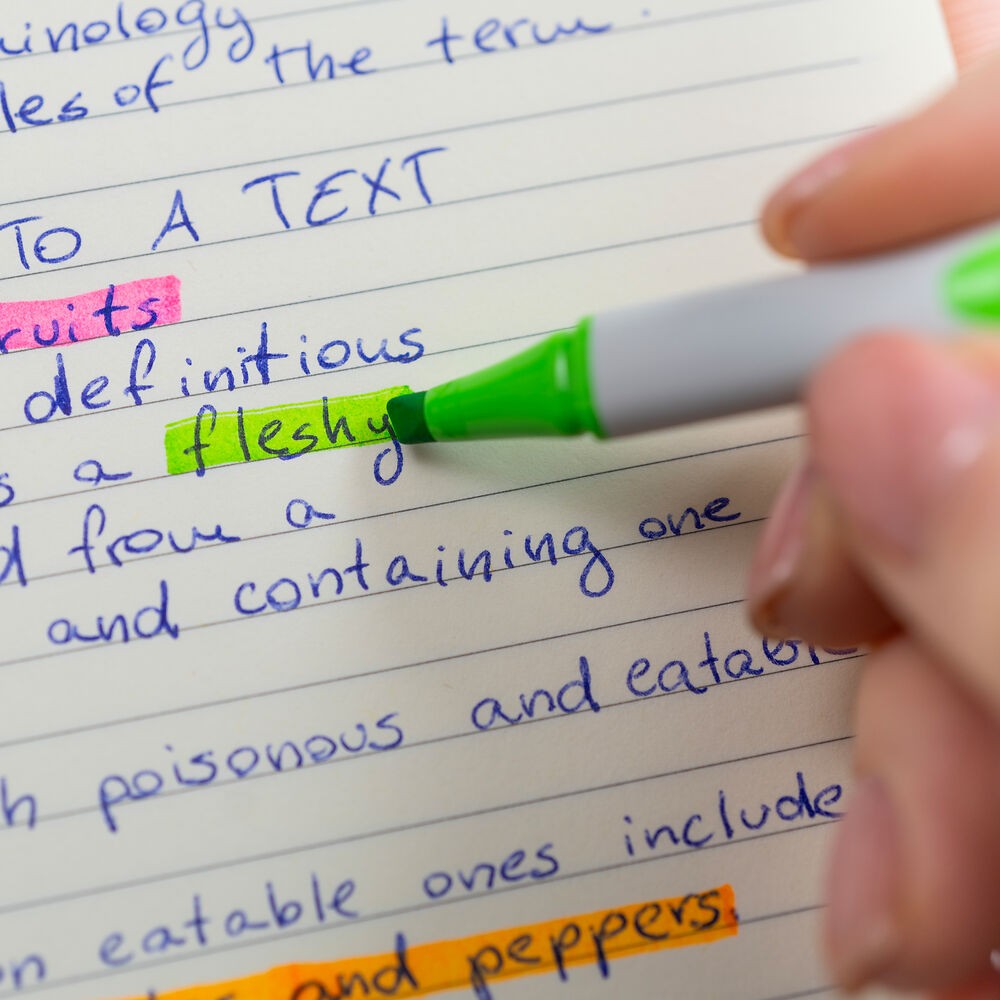 inology
les of the term.
TO A TEXT
ruits
definitious
s a fleshy
d from a
and containing one
h poisonous and eatable
n eatable ones include
and peppers.